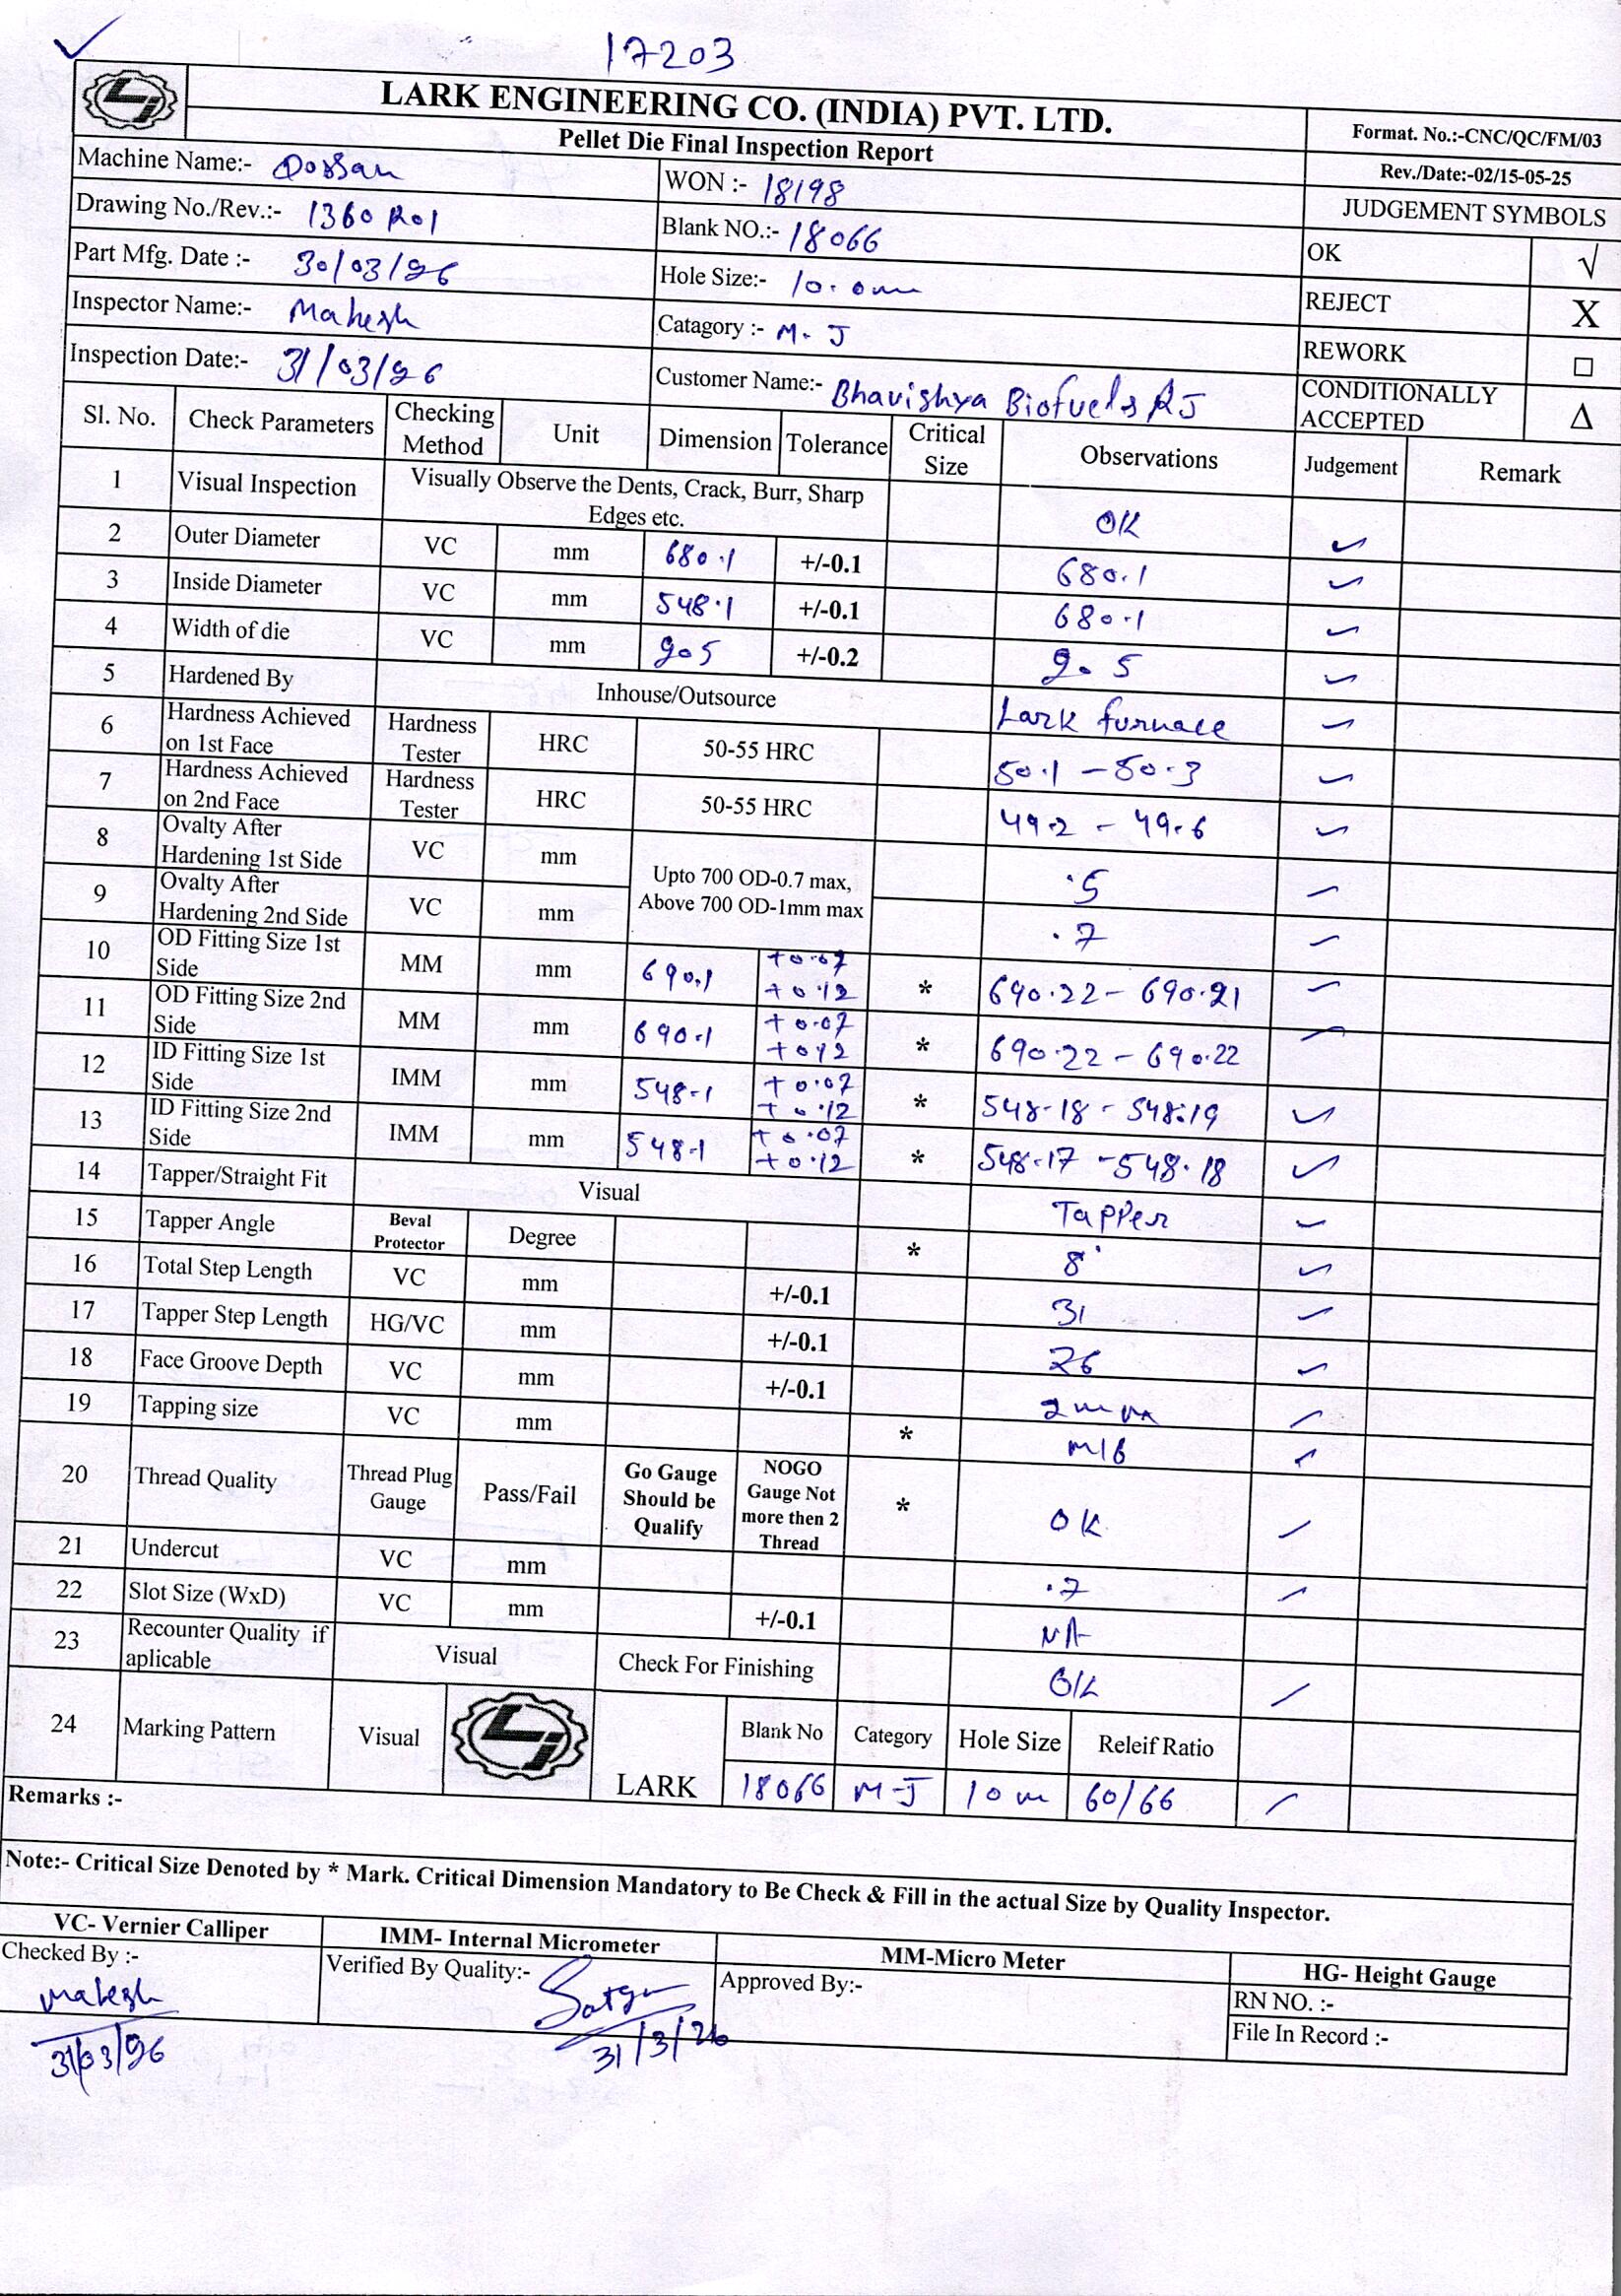 17203
LARK ENGINEERING CO. (INDIA) PVT. LTD.
Pellet Die Final Inspection Report
Format. No.:-CNC/QC/FM/03
Rev./Date:-02/15-05-25
Machine Name:- Dossan
WON :- 18198
JUDGEMENT SYMBOLS
Drawing No./Rev.:- 1360 R01
Blank NO.:- 18066
OK √
Part Mfg. Date :- 30/03/26
Hole Size:- 10.0mm
REJECT X
Inspector Name:- Mahesh
Catagory :- M-J
REWORK □
Inspection Date:- 31/03/26
Customer Name:- Bhavishya Biofuels RJ
CONDITIONALLY ACCEPTED Δ
Sl. No. Check Parameters Checking Method Unit Dimension Tolerance Critical Size Observations Judgement Remark
1 Visual Inspection Visually Observe the Dents, Crack, Burr, Sharp Edges etc. OK ✓
2 Outer Diameter VC mm 680.1 +/-0.1 680.1 ✓
3 Inside Diameter VC mm 548.1 +/-0.1 680.1 ✓
4 Width of die VC mm 205 +/-0.2 205 ✓
5 Hardened By Inhouse/Outsource Lark furnace ✓
6 Hardness Achieved on 1st Face Hardness Tester HRC 50-55 HRC 50.1 - 50.3 ✓
7 Hardness Achieved on 2nd Face Hardness Tester HRC 50-55 HRC 49.2 - 49.6 ✓
8 Ovalty After Hardening 1st Side VC mm Upto 700 OD-0.7 max, Above 700 OD-1mm max .5 ✓
9 Ovalty After Hardening 2nd Side VC mm .7 ✓
10 OD Fitting Size 1st Side MM mm 690.1 +0.07 +0.12 * 690.22 - 690.21 ✓
11 OD Fitting Size 2nd Side MM mm 690.1 +0.07 +0.12 * 690.22 - 690.22 ✓
12 ID Fitting Size 1st Side IMM mm 548.1 +0.07 +0.12 * 548.18 - 548.19 ✓
13 ID Fitting Size 2nd Side IMM mm 548.1 +0.07 +0.12 * 548.17 - 548.18 ✓
14 Tapper/Straight Fit Visual Tapper ✓
15 Tapper Angle Beval Protector Degree * 8° ✓
16 Total Step Length VC mm +/-0.1 31 ✓
17 Tapper Step Length HG/VC mm +/-0.1 26 ✓
18 Face Groove Depth VC mm +/-0.1 2mm ✓
19 Tapping size VC mm * M16 ✓
20 Thread Quality Thread Plug Gauge Pass/Fail Go Gauge Should be Qualify NOGO Gauge Not more then 2 Thread * OK ✓
21 Undercut VC mm .7 ✓
22 Slot Size (WxD) VC mm +/-0.1 NA
23 Recounter Quality if aplicable Visual Check For Finishing OK ✓
24 Marking Pattern Visual LARK Blank No Category Hole Size Releif Ratio
18066 M-J 10m 60/66 ✓
Remarks :-
Note:- Critical Size Denoted by * Mark. Critical Dimension Mandatory to Be Check & Fill in the actual Size by Quality Inspector.
VC- Vernier Calliper IMM- Internal Micrometer MM-Micro Meter HG- Height Gauge
Checked By :- Verified By Quality:- Approved By:- RN NO. :-
Mahesh
File In Record :-
31/03/26 31/3/26